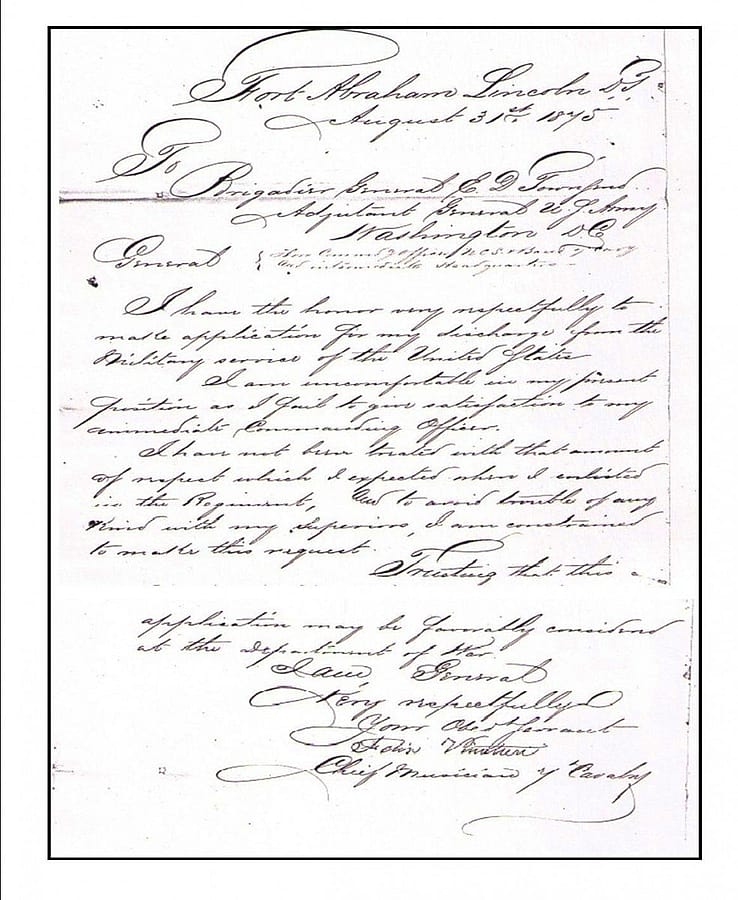 Fort Abraham Lincoln D.T.
August 31st 1875
To
Brigadier General E. D. Townsend
Adjutant General U. S. Army
Washington D.C.
General
Thro Commdg officer N.C.S. & Band 7 Cavy
And intermediate Headquarters
I have the honor very respectfully to
make application for my discharge from the
Military service of the United States
I am uncomfortable in my present
position as I fail to give satisfaction to my
immediate Commanding Officer.
I have not been treated with that amount
of respect which I expected when I enlisted
in the Regiment, And to avoid trouble of any
kind with my Superiors, I am constrained
to make this request.
Trusting that this
application may be favorably considered
at the Department of War.
I am, General
Very respectfully
Your Obedt Servant
Felix Vinatieri
Chief Musician 7" Cavalry